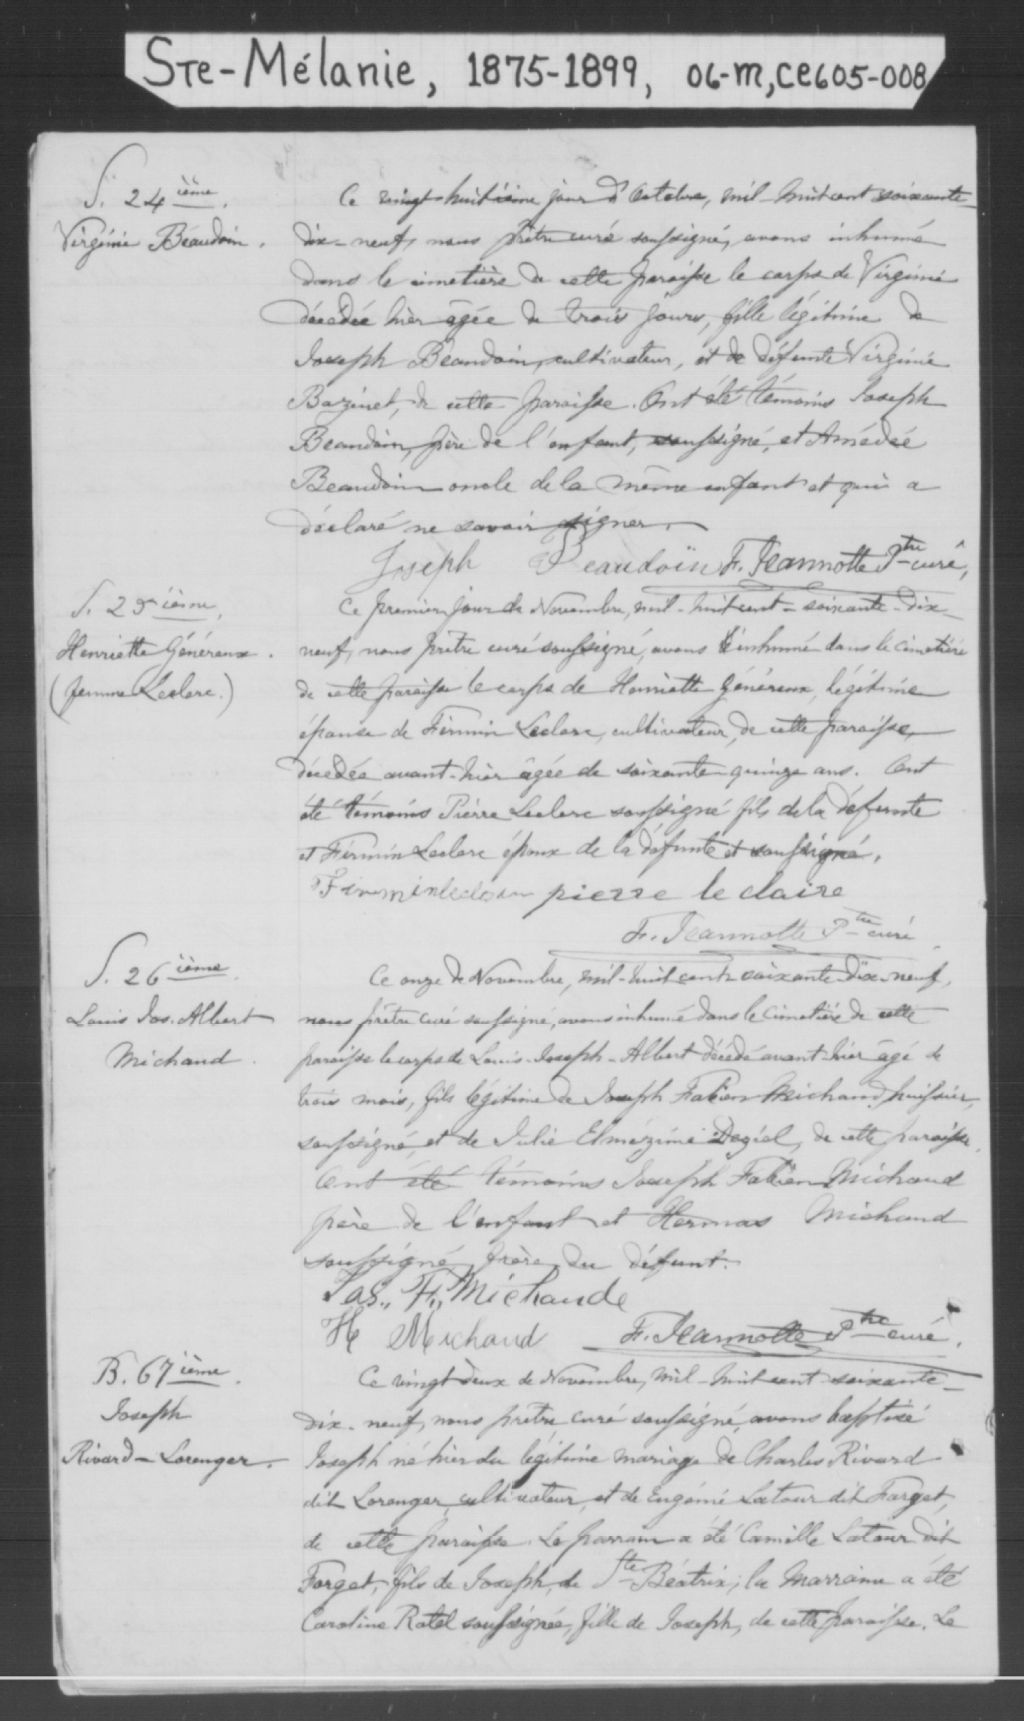 Ste-Mélanie, 1875-1899, 06-M,CE605-008
S. 24 ième.
Virginie Beaudoin.
Ce vingt-huitième jour d'Octobre, mil-huit cent soixante-
dix-neuf, nous prêtre curé soussigné, avons inhumé
dans le cimetière de cette paroisse le corps de Virginie
décédée hier âgée de trois jours, fille légitime de
Joseph Beaudoin, cultivateur, et de défunte Virginie
Bazinet, de cette paroisse. Ont été témoins Joseph
Beaudoin, père de l'enfant, soussigné, et Amédée
Beaudoin oncle de la même enfant et qui a
déclaré ne savoir signer.
Joseph Beaudoin F. Jeannotte Ptre curé,
S. 25 ième.
Henriette Généreux.
(femme Leclerc.)
Ce premier jour de Novembre, mil-huit cent-soixante-dix-
neuf, nous prêtre curé soussigné, avons inhumé dans le cimetière
de cette paroisse le corps de Henriette Généreux, légitime
épouse de Firmin Leclerc, cultivateur, de cette paroisse,
décédée avant-hier âgée de soixante-quinze ans. Ont
été témoins Pierre Leclerc soussigné fils de la défunte
et Firmin Leclerc époux de la défunte et soussigné.
pierre le claire
F. Jeannotte Ptre curé
S. 26 ième.
Louis Jos. Albert
Michaud.
Ce onze de Novembre, mil-huit cent soixante-dix-neuf,
nous prêtre curé soussigné, avons inhumé dans le cimetière de cette
paroisse le corps de Louis-Joseph-Albert décédé avant-hier âgé de
trois mois, fils légitime de Joseph Fabien Michaud, huissier,
soussigné, et de Julie Elmézime Deziel, de cette paroisse.
Ont été témoins Joseph Fabien Michaud
père de l'enfant et Hermas Michaud
soussigné, frère du défunt.
Jos., F., Michaude
H Michaud F. Jeannotte Ptre curé.
B. 67 ième.
Joseph
Rivard-Loranger.
Ce vingt-deux de Novembre, mil-huit cent soixante-
dix-neuf, nous prêtre curé soussigné, avons baptisé
Joseph né hier du légitime mariage de Charles Rivard
dit Loranger, cultivateur, et de Eugénie Latour dit Forget,
de cette paroisse. Le parrain a été Camille Latour dit
Forget, fils de Joseph, de Ste Béatrix; la marraine a été
Caroline Ratel soussignée, fille de Joseph, de cette paroisse. Le